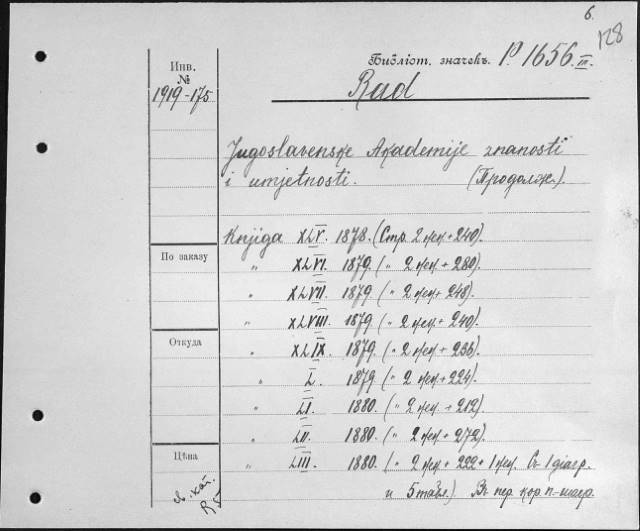 6.
128
Инв.
№
1919-175
Библіот. значекъ. Р. 1656. III.
Rad
Jugoslavenske Akademije znanosti
i umjetnosti. (Продолж.).
Knjiga XLV. 1878. (Стр. 2 неп. + 240).
" XLVI. 1879. ( " 2 неп. + 280).
" XLVII. 1879. ( " 2 неп. + 248).
" XLVIII. 1879. ( " 2 неп. + 240).
" XLIX. 1879. ( " 2 неп. + 236).
" L. 1879. ( " 2 неп. + 224).
" LI. 1880. ( " 2 неп. + 212).
" LII. 1880. ( " 2 неп. + 272).
" LIII. 1880. ( " 2 неп. + 222 + 1 неп. Съ 1 діагр.
и 5 табл.) Въ пер. кор. п.-шагр.
По заказу
Откуда
Цѣна
кат.